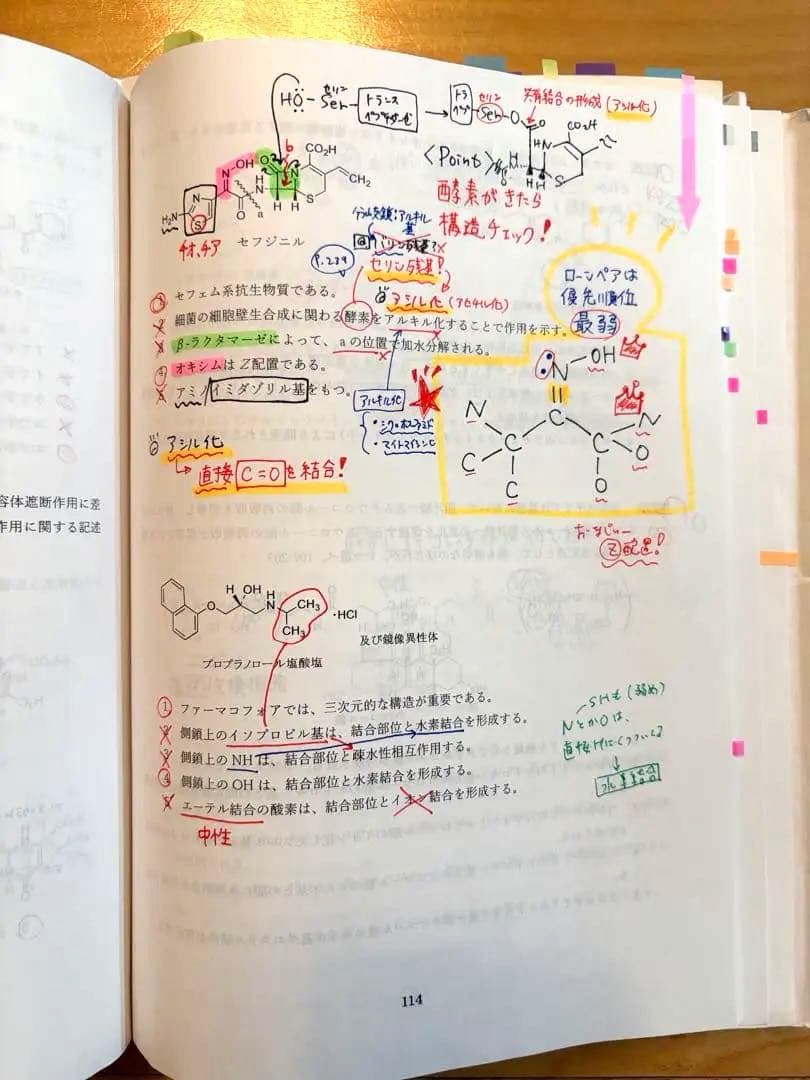 HO-Ser セリン トランスペプチダーゼ → トラペプ セリン Ser-O
共有結合の形成(アシル化)
O CO₂H
HN
H H S
<Point>
酵素がきたら
構造チェック!
b
N OH O H N CO₂H CH₂
H₂N S N O H a H H S
チオ、チア
セフジニル
アルキル基
P.239
セリン残基!
アシル化(アセチル化)
① セフェム系抗生物質である。
2 細菌の細胞壁生合成に関わる酵素をアルキル化することで作用を示す。
3 β-ラクタマーゼによって、aの位置で加水分解される。
④ オキシムはZ配置である。
5 アミノイミダゾリル基をもつ。
アルキル化
・シクロホスファミド
・マイトマイシンC
アシル化
→直接C=Oを結合!
ローンペアは
優先順位
最弱
N-OH
N C C C N
C C O O
おなじ
Ⓩ配置!
容体遮断作用に差
作用に関する記述
O H OH H N CH₃ CH₃ ・HCl
及び鏡像異性体
プロプラノロール塩酸塩
① ファーマコフォアでは、三次元的な構造が重要である。
2 側鎖上のイソプロピル基は、結合部位と水素結合を形成する。
3 側鎖上のNHは、結合部位と疎水性相互作用する。
④ 側鎖上のOHは、結合部位と水素結合を形成する。
5 エーテル結合の酸素は、結合部位とイオン結合を形成する。
中性
SHも(弱め)
NとかOは、
直接Hにくっついてる
↓
水素結合
114